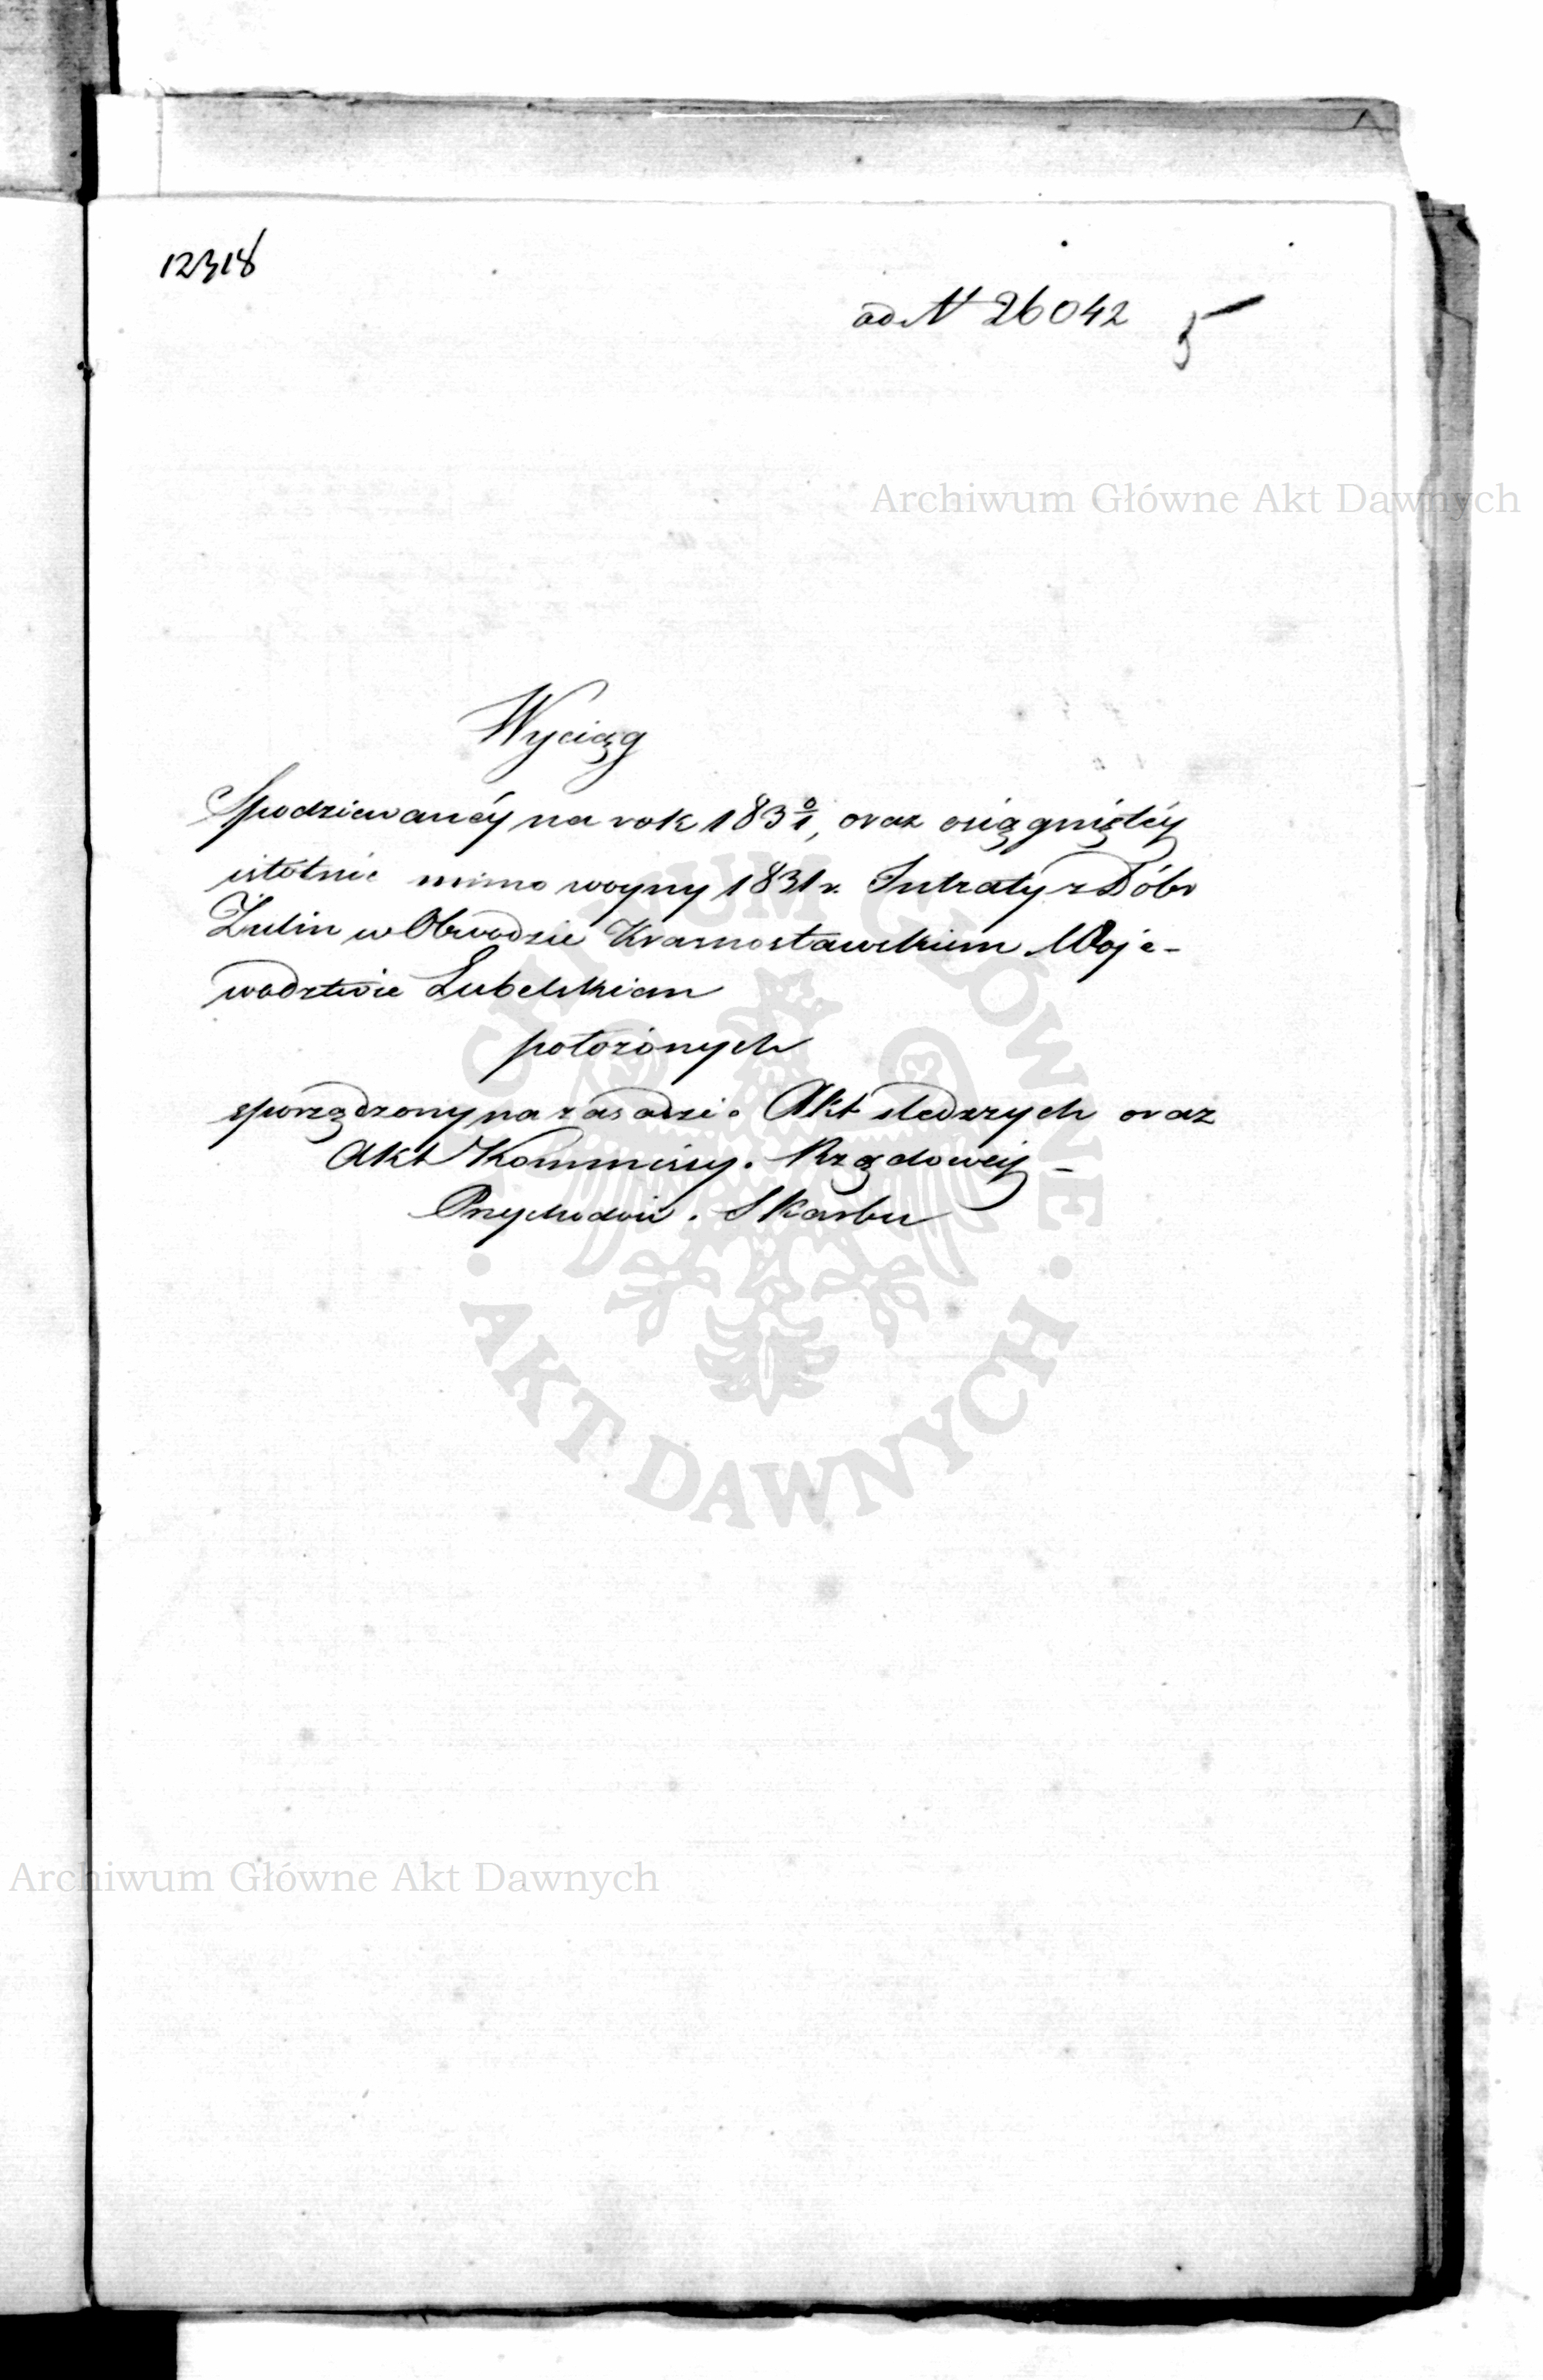 12318
ad N 26042
5
Archiwum Główne Akt Dawnych
Wyciąg
Spodziewanéy na rok 183 0/1, oraz osiągniętéy
istotnie mimo woyny 1831 r. Intraty z Dóbr
Żulin w Obwodzie Krasnostawskiem Woje-
wodztwie Lubelskiem
położonych
sporządzony na zasadzie Akt śledzzych oraz
Akt Kommissyi Rządowéy -
Przychodów i Skarbu
ARCHIWUM GŁÓWNE · AKT DAWNYCH ·
Archiwum Główne Akt Dawnych